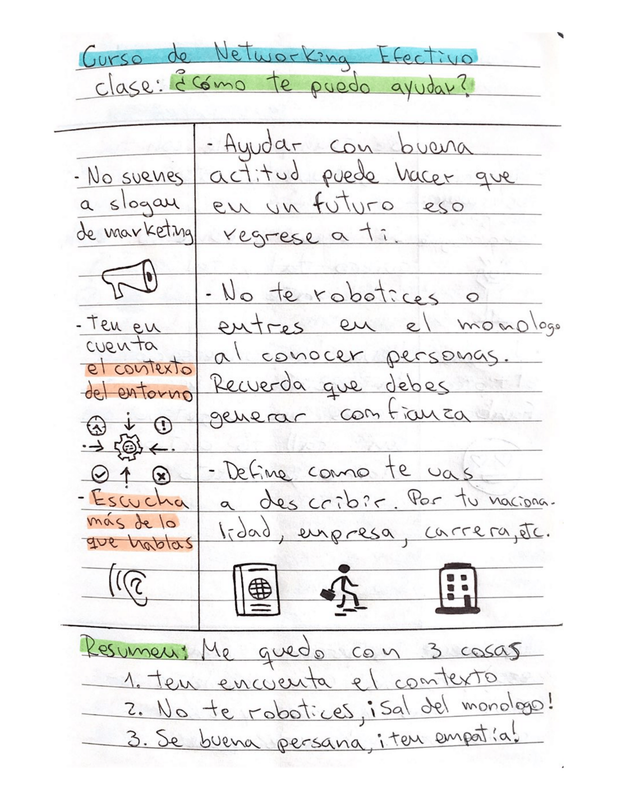 Curso de Networking Efectivo
clase: ¿Cómo te puedo ayudar?
- No suenes
a slogan
de marketing
- Ten en
cuenta
el contexto
del entorno
- Escucha
más de lo
que hablas
- Ayudar con buena
actitud puede hacer que
en un futuro eso
regrese a ti.
- No te robotices o
entres en el monologo
al conocer personas.
Recuerda que debes
generar confianza
- Define como te vas
a describir. Por tu naciona-
lidad, empresa, carrera, etc.
Resumen: Me quedo con 3 cosas
1. ten encuenta el contexto
2. No te robotices, ¡Sal del monologo!
3. Se buena persana, ¡ten empatía!